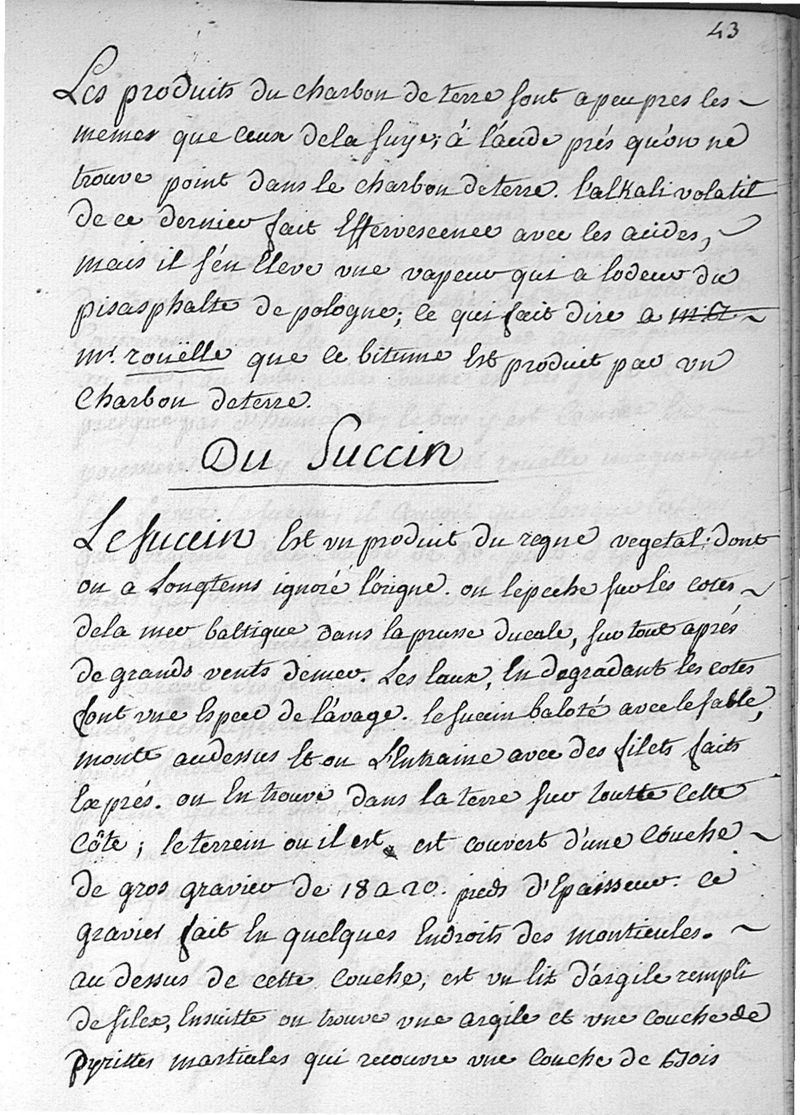 43
Les produits du charbon de terre sont a peu pres les ~
memes que ceux de la suÿe; à l'acide prés qu'on ne
trouve point dans le charbon de terre. l'alkali volatil
de ce dernier fait Effervescence avec les acides, ~
mais il s'en Eleve une vapeur qui a lodeur du
pisasphalte de pologne; ce qui fait dire a ~
mr. rouëlle que ce bitume Est produit par un
Charbon de terre.
Du Succin
Le succin Est un produit du regne vegetal. dont
on a Longtems ignoré l'origne. on le peche sur les cotes ~
de la mer baltique dans la prusse ducale, sur tout aprés
de grands vents de mer. Les Eaux, En degradant les cotes
font une Espece de lavage. le succin baloté avec le sable,
monte au dessus Et on L'Entraine avec des filets faits
Exprés. on En trouve dans la terre sur toutte Cette
Côte; le terrein ou il est, est couvert d'une Couche ~
de gros gravier de 18 a 20. pieds d'Epaisseur. Ce
gravier fait En quelques Endroits des monticules. ~
au dessus de cette Couche, est un lit d'argile rempli
de silex, Ensuitte on trouve une argile et une couche de
pyrittes martiales qui recouvre une Couche de Bois